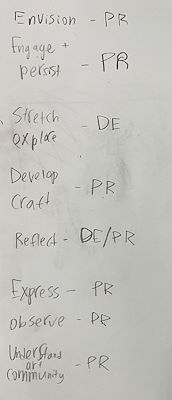 Envision - PR
Engage +
persist - PR
Stretch
explore - DE
Develop
Craft - PR
Reflect - DE/PR
Express - PR
observe - PR
Understand
art
community - PR